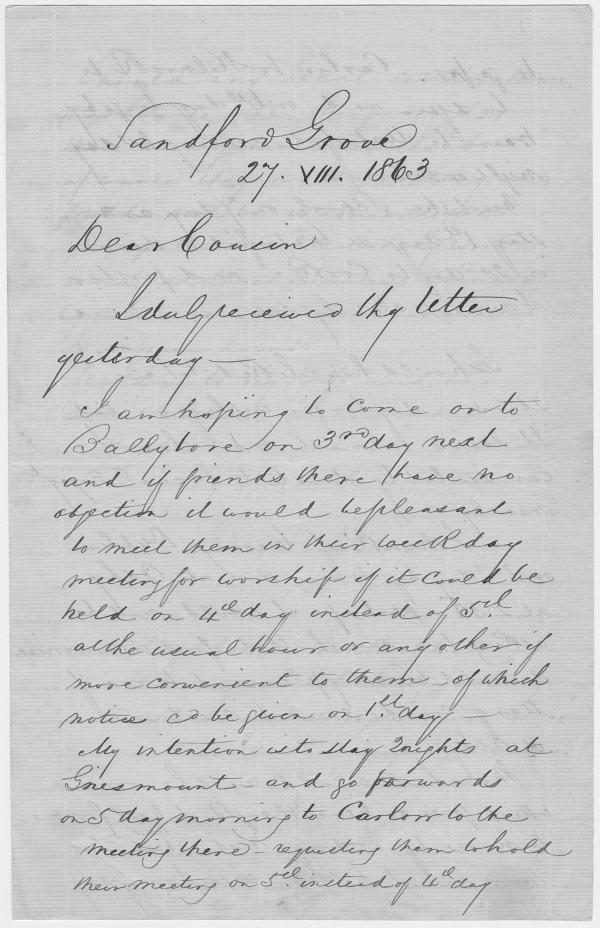 Sandford Grove
27. VIII. 1863
Dear Cousin
I duly received thy letter
yesterday —
I am hoping to come on to
Ballytore on 3rd day next
and if friends there have no
objection it would be pleasant
to meet them in their week day
meeting for worship if it could be
held on 4th day instead of 5th
at the usual hour or any other if
more convenient to them - of which
notice cd be given on 1st day —
My intention is to stay 2 nights at
Griesmount - and go forwards
on 5 day morning to Carlow to the
meeting there - requesting them to hold
their meeting on 5th instead of 4th day